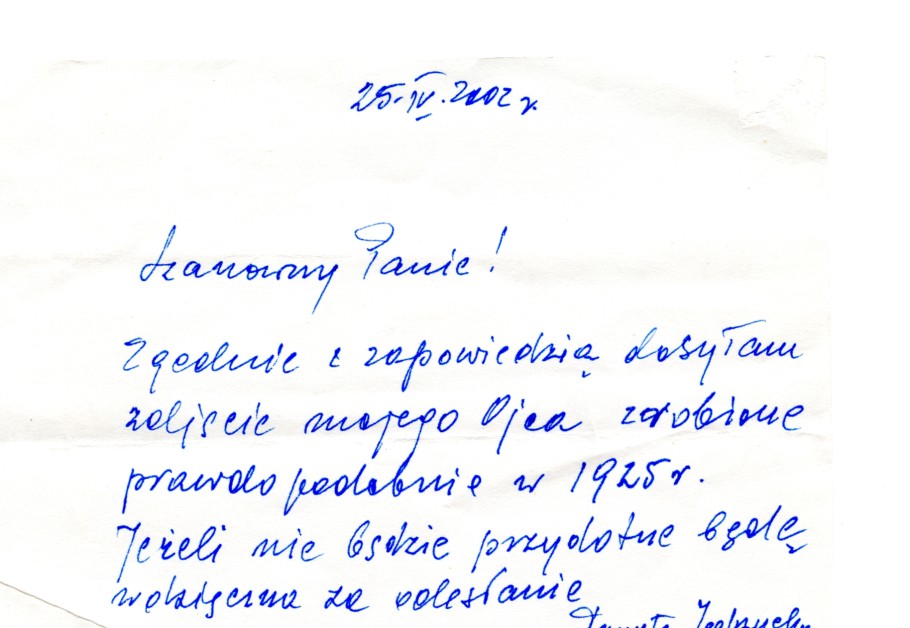 25.IV.2002 r.
Szanowny Panie!
Zgodnie z zapowiedzią dosyłam
zdjęcie mojego Ojca zrobione
prawdopodobnie w 1925 r.
Jeżeli nie będzie przydatne będę
wdzięczna za odesłanie
Danuta